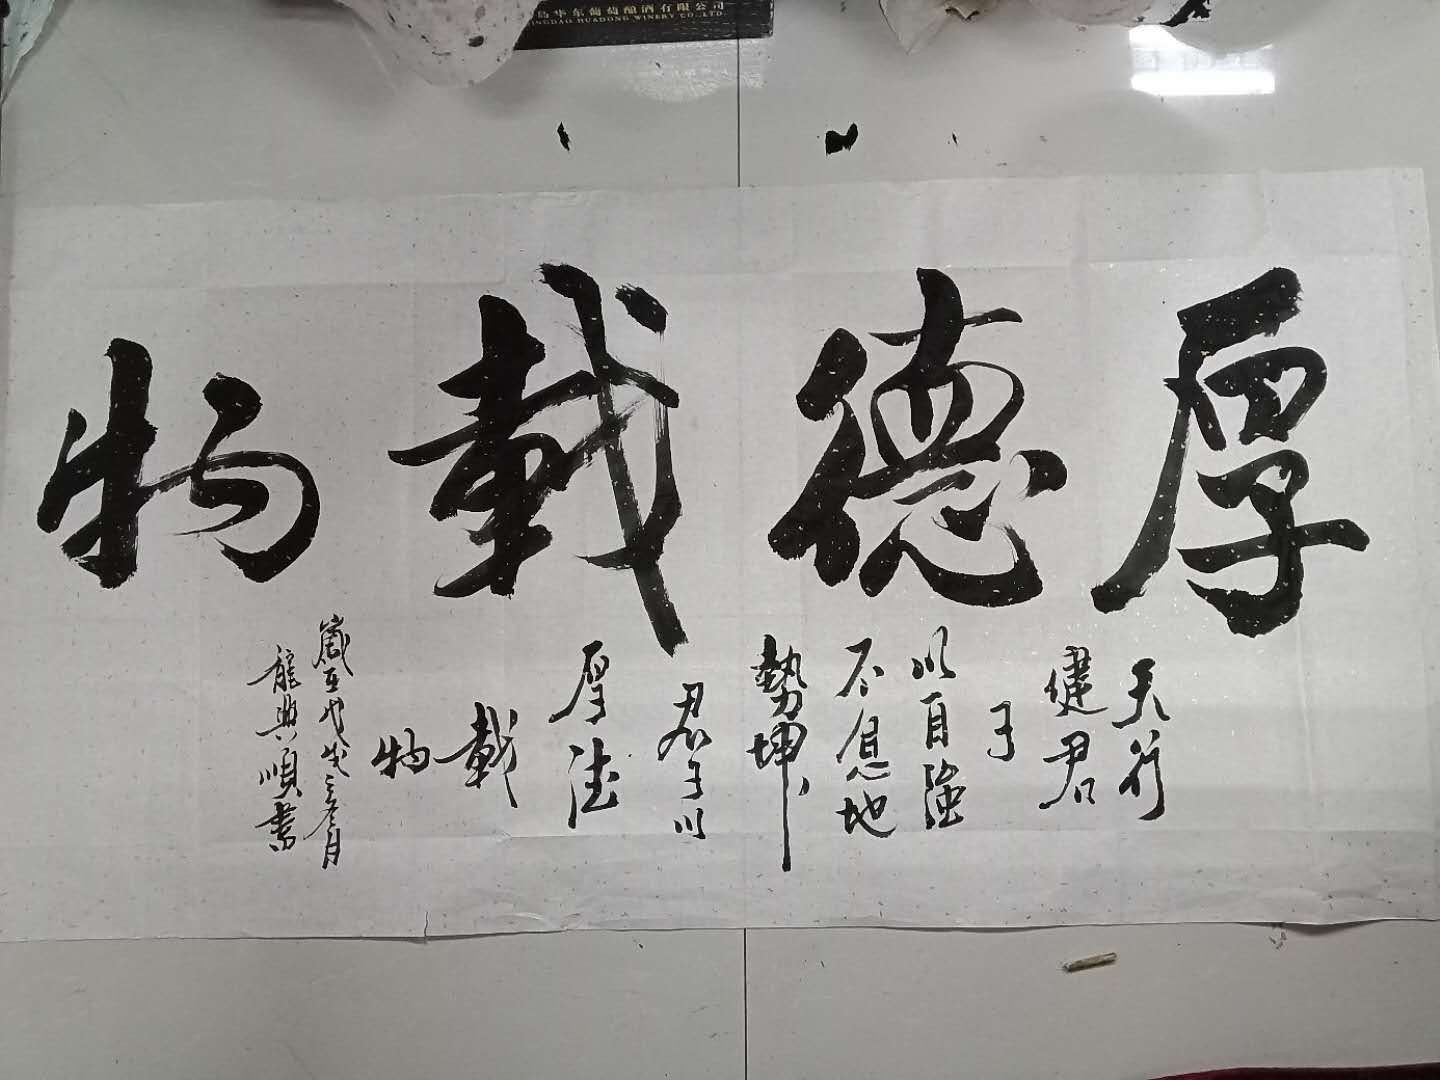 岛华东葡萄酿酒有限公司
INGDAO HUADONG WINERY CO.,LTD.
厚德载物
天行
健君
子
以自强
不息地
势坤
君子以
厚德
载
物
岁在戊戌之冬月
龙兴顺书